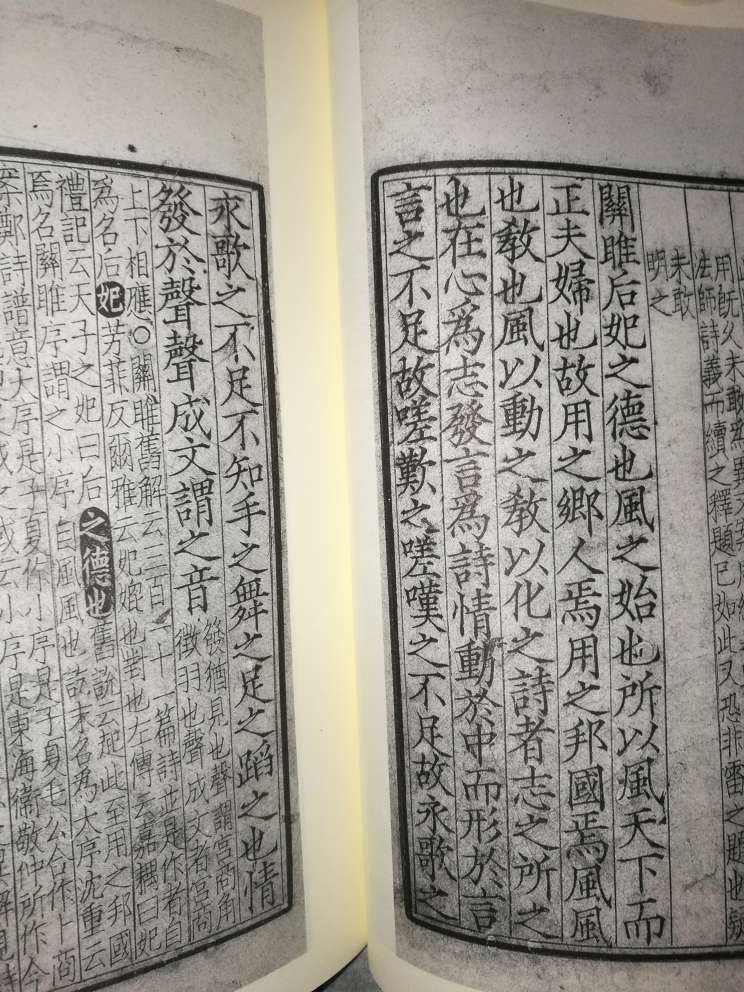 用既久未敢為異又案周續
法師詩義而續之釋題已如此又恐非雷之題也疑
未敢
明之
關雎后妃之德也風之始也所以風天下而
正夫婦也故用之鄉人焉用之邦國焉風風
也教也風以動之教以化之詩者志之所之
也在心為志發言為詩情動於中而形於言
言之不足故嗟歎之嗟嘆之不足故永歌之
永歌之不足不知手之舞之足之蹈之也情
發於聲聲成文謂之音
發猶見也聲謂宮商角
徵羽也聲成文者宮商
上下相應○關雎舊解云三百一十一篇詩並是作者自
為名后妃芳菲反爾雅云妃媲也對也左傳云嘉耦曰妃
禮記云天子之妃曰后之德也舊說云起此至用之邦國
焉名關雎序謂之小序自風風也訖末名為大序沈重云
案鄭詩譜意大序是子夏作小序是子夏毛公合作卜商
成之或云小序是東海衛敬仲所作今
解見詩